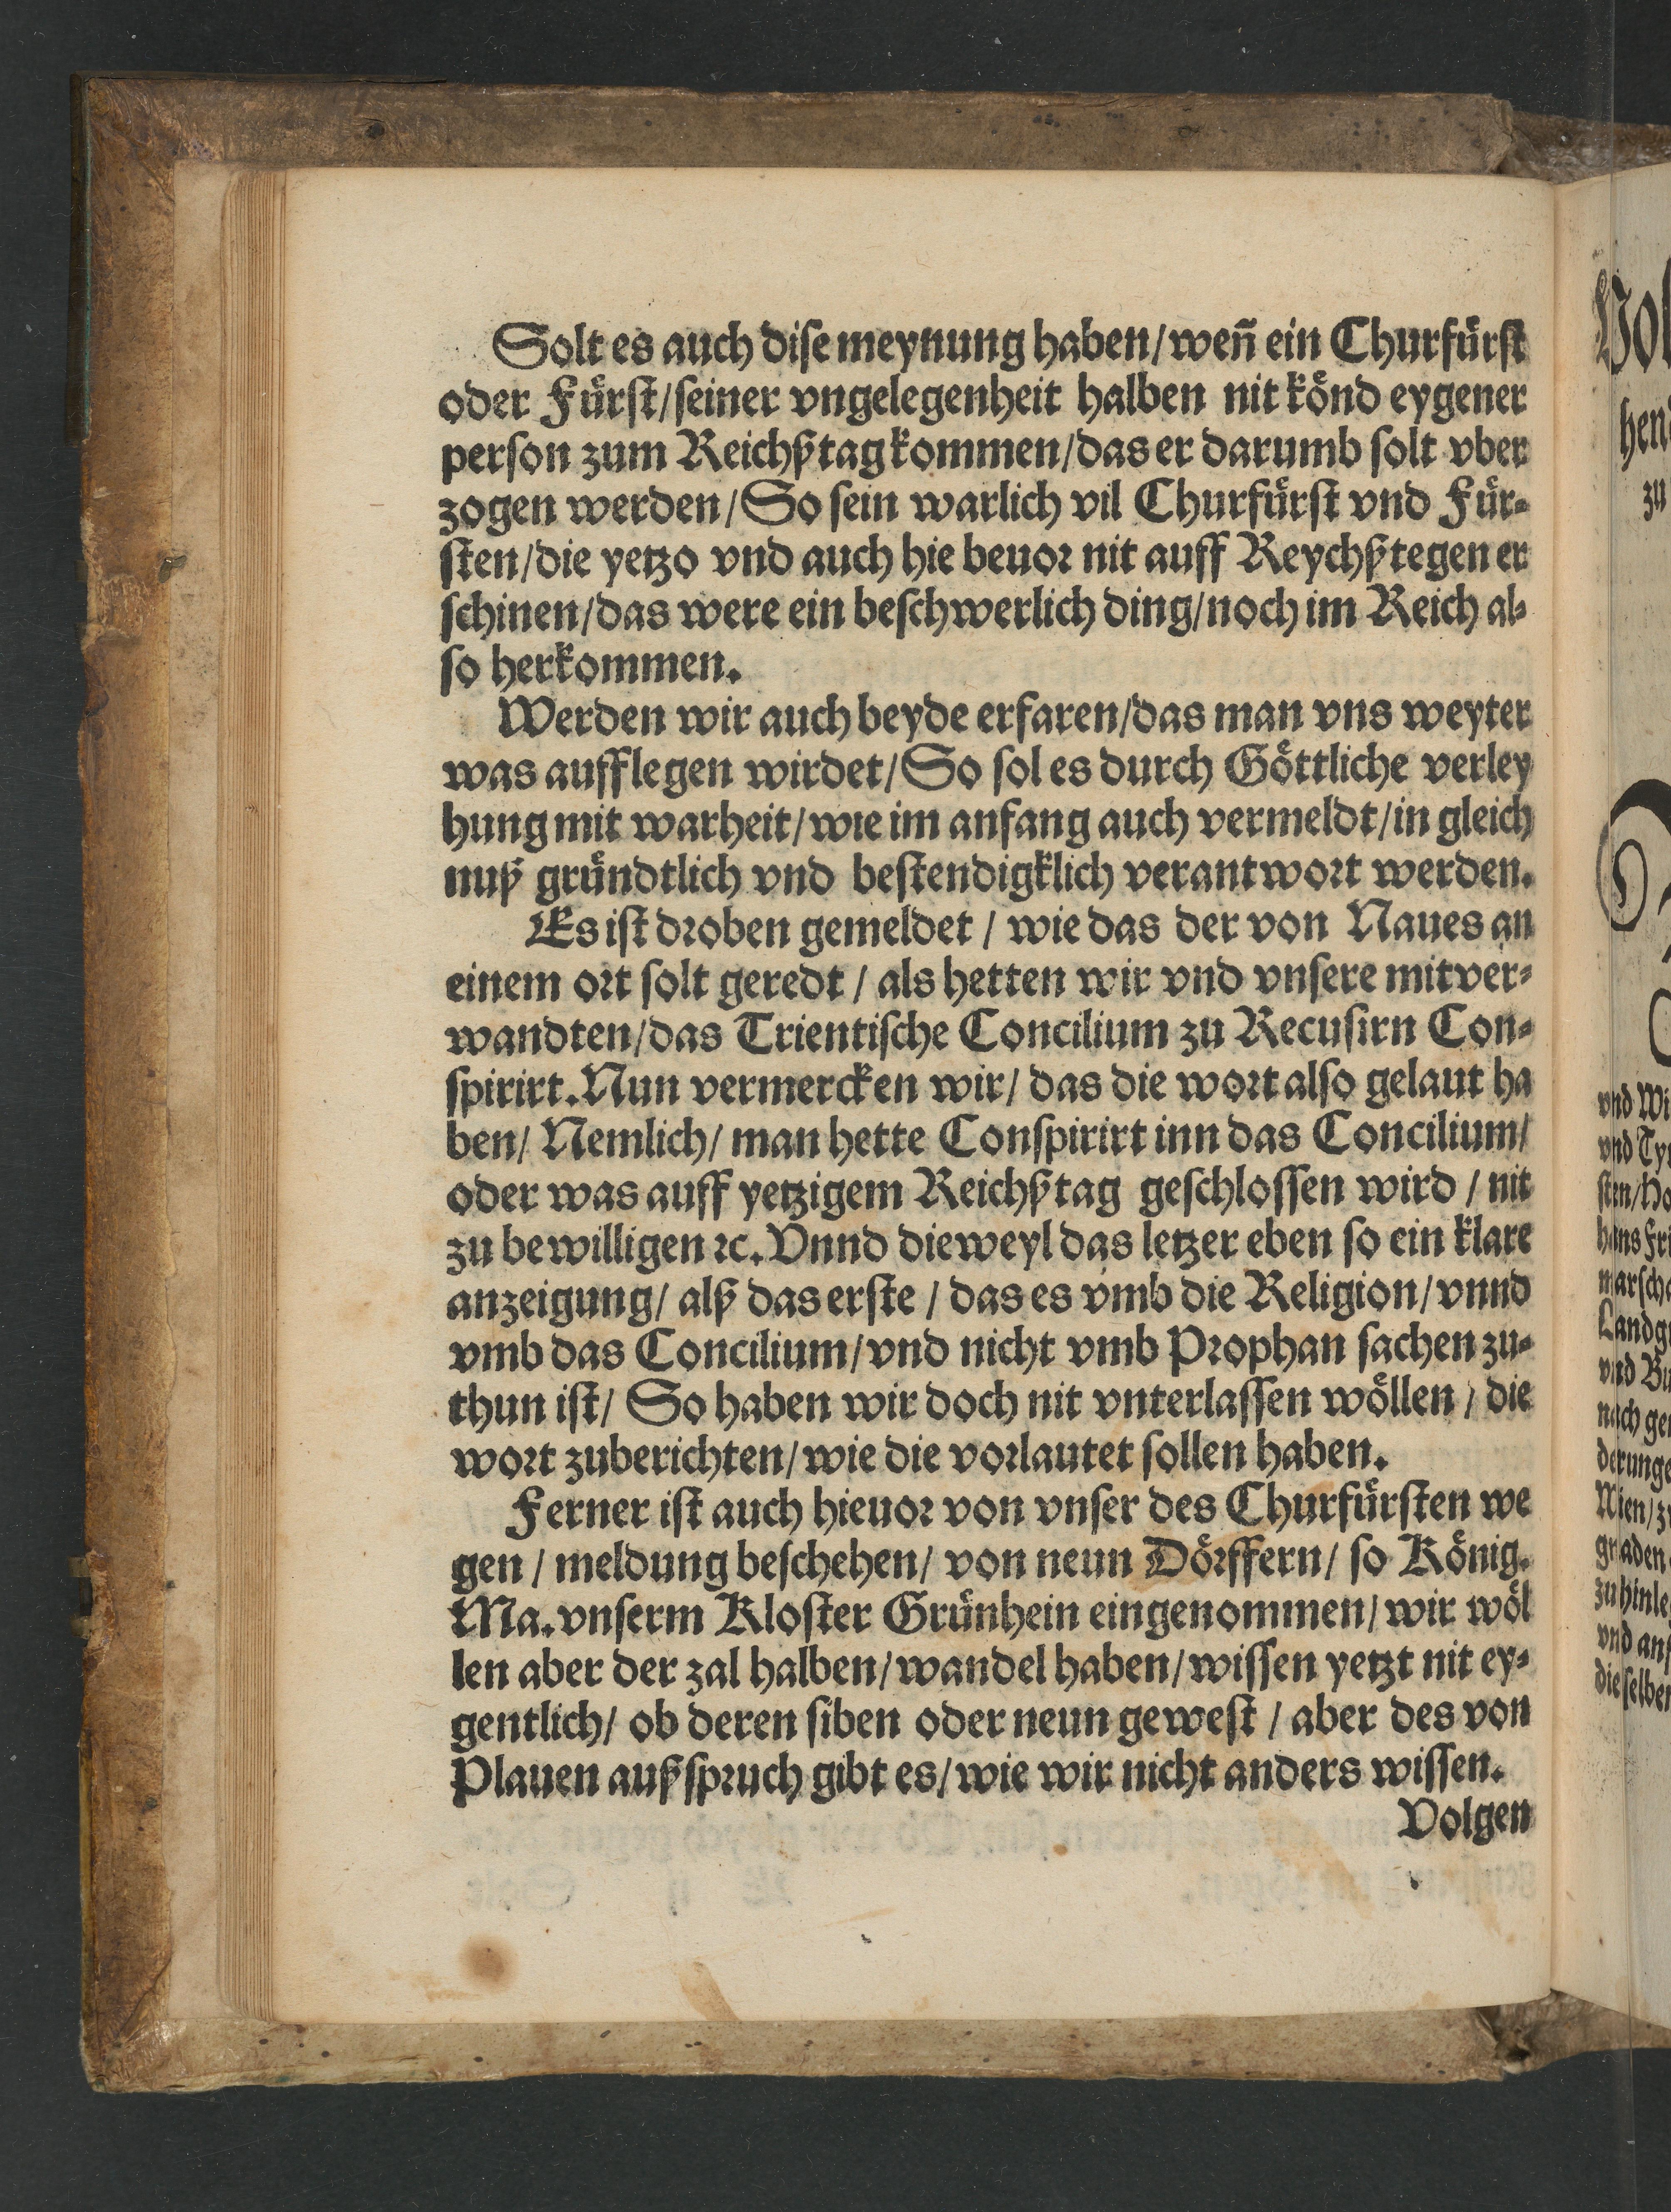 Solt es auch dise meynung haben/ weñ ein Churfürst
oder Fürst/ seiner vngelegenheit halben nit könd eygener
person zum Reichßtag kommen/ das er darumb solt vber
zogen werden/ So sein warlich vil Churfürst vnd Für-
sten/ die yetzo vnd auch hie beuor nit auff Reychßtegen er
schinen/ das were ein beschwerlich ding/ noch im Reich al-
so herkommen.
Werden wir auch beyde erfaren/ das man vns weyter
was aufflegen wirdet/ So sol es durch Göttliche verley
hung mit warheit/ wie im anfang auch vermeldt/ in gleich
nuß gründtlich vnd bestendigklich verantwort werden.
Es ist droben gemeldet / wie das der von Naues an
einem ort solt geredt / als hetten wir vnd vnsere mitver-
wandten/ das Trientische Concilium zu Recusirn Con-
spirirt. Nun vermercken wir/ das die wort also gelaut ha
ben/ Nemlich/ man hette Conspirirt inn das Concilium/
oder was auff yetzigem Reichßtag geschlossen wird / nit
zu bewilligen ꝛc. Vnnd dieweyl das letzer eben so ein klare
anzeigung/ alß das erste / das es vmb die Religion/ vnnd
vmb das Concilium/ vnd nicht vmb Prophan sachen zu-
thun ist/ So haben wir doch nit vnterlassen wöllen / die
wort zuberichten/ wie die vorlautet sollen haben.
Ferner ist auch hieuor von vnser des Churfürsten we
gen / meldung beschehen/ von neun Dörffern/ so König.
Ma. vnserm Kloster Grünhein eingenommen/ wir wöl
len aber der zal halben/ wandel haben/ wissen yetzt nit ey-
gentlich/ ob deren siben oder neun gewest / aber des von
Plauen außspruch gibt es/ wie wir nicht anders wissen.
Volgen
hen
zu
vnd Wi
vnd Ty
sten/ Ho
hans Fri
marscha
Landg
vnd Bu
nach ge
derunge
Mien/ z
gnaden
zu hinle
vnd an
die selben